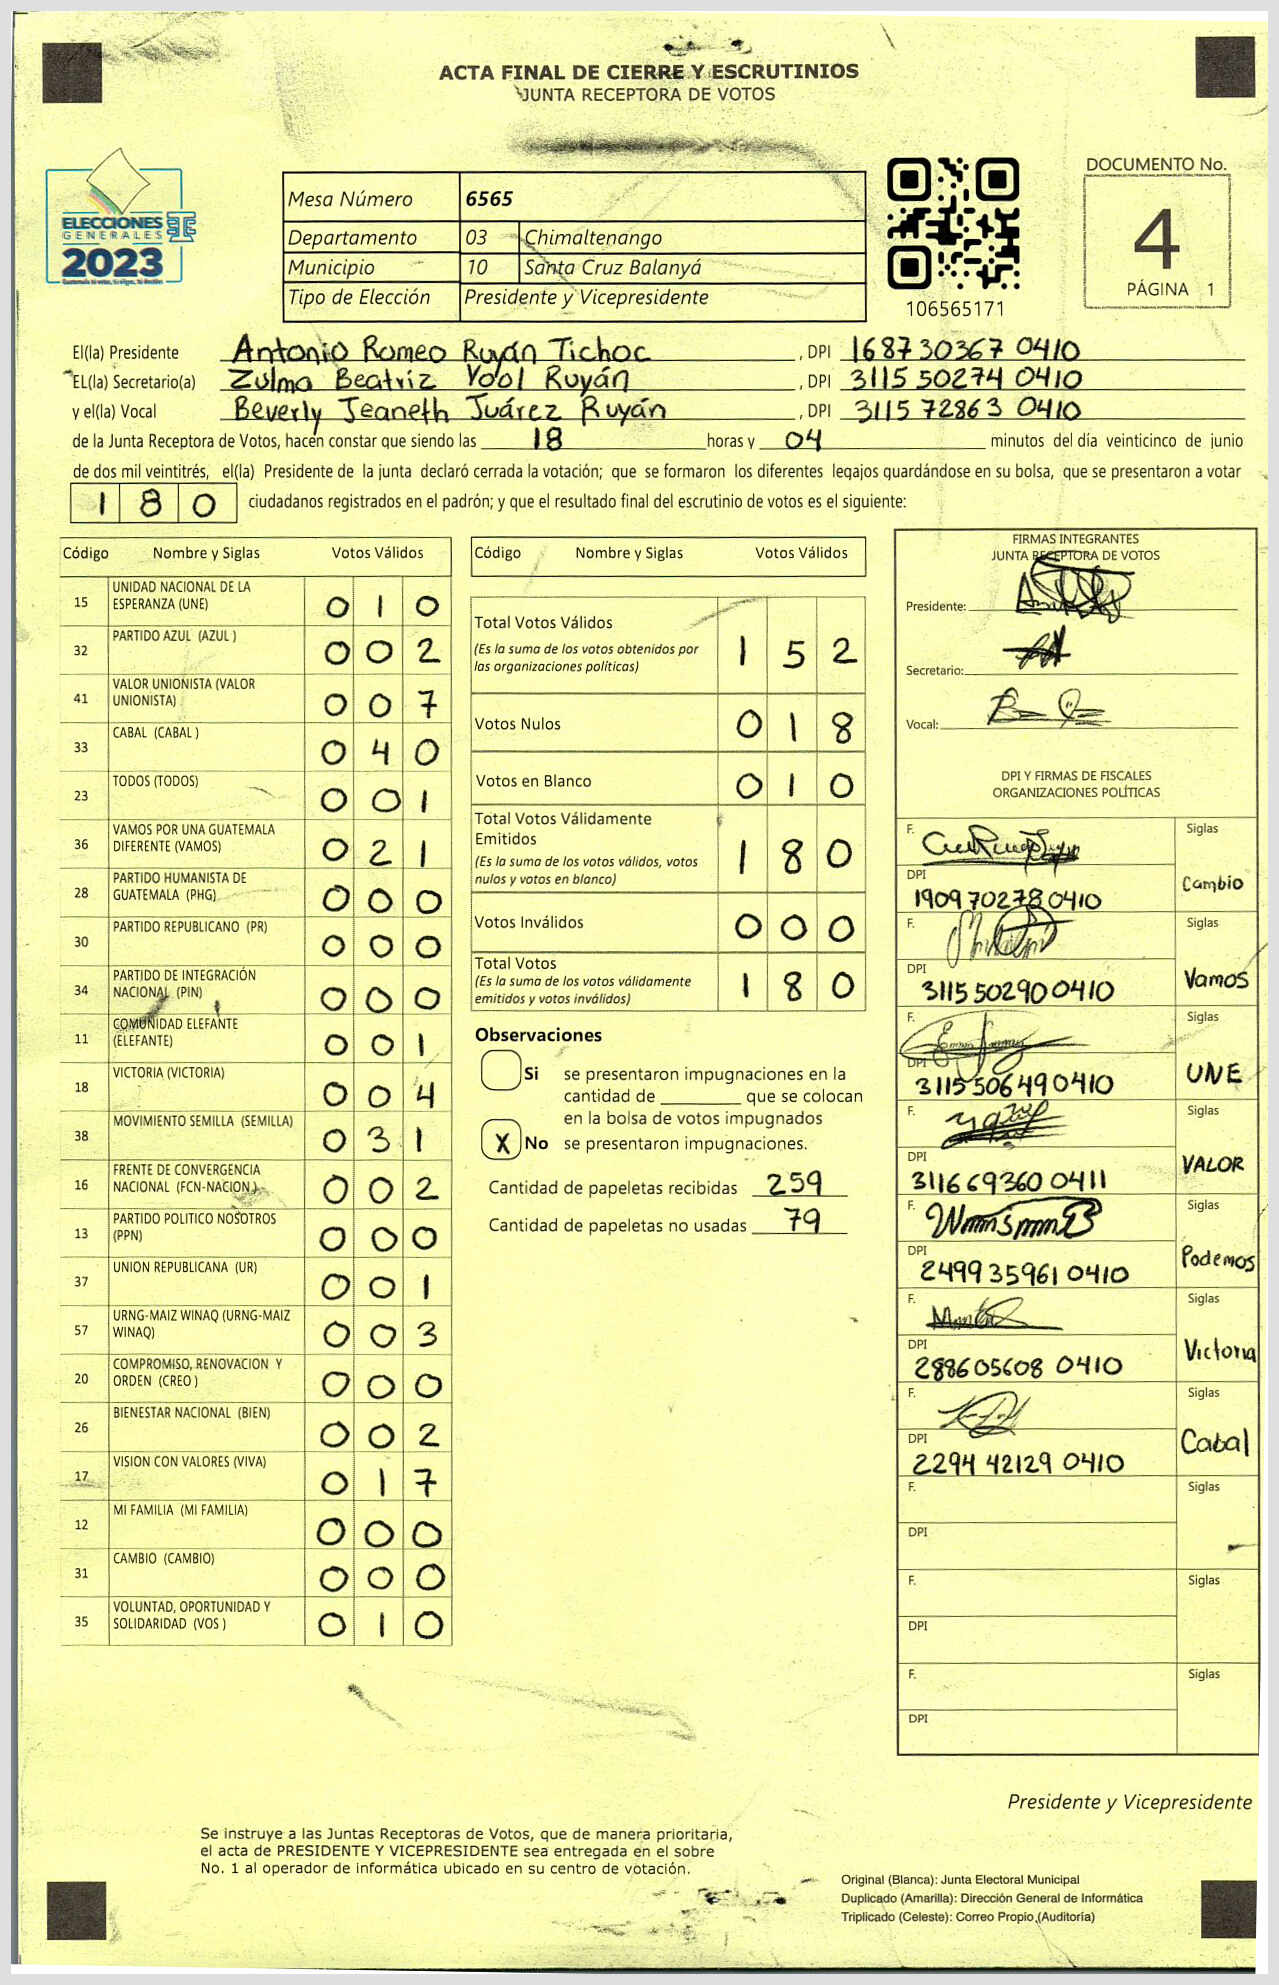 ACTA FINAL DE CIERRE Y ESCRUTINIOS
JUNTA RECEPTORA DE VOTOS
ELECCIONES
GENERALES
2023
Mesa Número 6565
Departamento 03 Chimaltenango
Municipio 10 Santa Cruz Balanyá
Tipo de Elección Presidente y Vicepresidente
106565171
DOCUMENTO No.
4
PÁGINA 1
El(la) Presidente Antonio Romeo Ruyán Tichoc, DPI 168730367 0410
EL(la) Secretario(a) Zulma Beatriz Yool Ruyán, DPI 3115 50274 0410
y el(la) Vocal Beverly Jeaneth Juárez Ruyán, DPI 3115 72863 0410
de la Junta Receptora de Votos, hacen constar que siendo las 18 horas y 04 minutos del día veinticinco de junio
de dos mil veintitrés, el(la) Presidente de la junta declaró cerrada la votación; que se formaron los diferentes legajos guardándose en su bolsa, que se presentaron a votar
180 ciudadanos registrados en el padrón; y que el resultado final del escrutinio de votos es el siguiente:
Código Nombre y Siglas Votos Válidos
15 UNIDAD NACIONAL DE LA ESPERANZA (UNE) 0 1 0
32 PARTIDO AZUL (AZUL ) 0 0 2
41 VALOR UNIONISTA (VALOR UNIONISTA) 0 0 7
33 CABAL (CABAL ) 0 4 0
23 TODOS (TODOS) 0 0 1
36 VAMOS POR UNA GUATEMALA DIFERENTE (VAMOS) 0 2 1
28 PARTIDO HUMANISTA DE GUATEMALA (PHG) 0 0 0
30 PARTIDO REPUBLICANO (PR) 0 0 0
34 PARTIDO DE INTEGRACIÓN NACIONAL (PIN) 0 0 0
11 COMUNIDAD ELEFANTE (ELEFANTE) 0 0 1
18 VICTORIA (VICTORIA) 0 0 4
38 MOVIMIENTO SEMILLA (SEMILLA) 0 3 1
16 FRENTE DE CONVERGENCIA NACIONAL (FCN-NACION ) 0 0 2
13 PARTIDO POLITICO NOSOTROS (PPN) 0 0 0
37 UNION REPUBLICANA (UR) 0 0 1
57 URNG-MAIZ WINAQ (URNG-MAIZ WINAQ) 0 0 3
20 COMPROMISO, RENOVACION Y ORDEN (CREO ) 0 0 0
26 BIENESTAR NACIONAL (BIEN) 0 0 2
17 VISION CON VALORES (VIVA) 0 1 7
12 MI FAMILIA (MI FAMILIA) 0 0 0
31 CAMBIO (CAMBIO) 0 0 0
35 VOLUNTAD, OPORTUNIDAD Y SOLIDARIDAD (VOS ) 0 1 0
Código Nombre y Siglas Votos Válidos
Total Votos Válidos 1 5 2
(Es la suma de los votos obtenidos por
las organizaciones políticas)
Votos Nulos 0 1 8
Votos en Blanco 0 1 0
Total Votos Válidamente
Emitidos 1 8 0
(Es la suma de los votos válidos, votos
nulos y votos en blanco)
Votos Inválidos 0 0 0
Total Votos 1 8 0
(Es la suma de los votos válidamente
emitidos y votos inválidos)
Observaciones
Si se presentaron impugnaciones en la
cantidad de ________ que se colocan
en la bolsa de votos impugnados
X No se presentaron impugnaciones.
Cantidad de papeletas recibidas 259
Cantidad de papeletas no usadas 79
FIRMAS INTEGRANTES
JUNTA RECEPTORA DE VOTOS
Presidente:
Secretario:
Vocal:
DPI Y FIRMAS DE FISCALES
ORGANIZACIONES POLÍTICAS
F. Siglas
DPI Cambio
190970278 0410
F. Siglas
DPI Vamos
3115 50290 0410
F. Siglas
DPI UNE
3115 50649 0410
F. Siglas
DPI VALOR
311669360 0411
F. Siglas
DPI Podemos
2499 35961 0410
F. Siglas
DPI Victoria
288605608 0410
F. Siglas
DPI Cabal
2294 42129 0410
F. Siglas
DPI
F. Siglas
DPI
F. Siglas
DPI
Presidente y Vicepresidente
Se instruye a las Juntas Receptoras de Votos, que de manera prioritaria,
el acta de PRESIDENTE Y VICEPRESIDENTE sea entregada en el sobre
No. 1 al operador de informática ubicado en su centro de votación.
Original (Blanca): Junta Electoral Municipal
Duplicado (Amarilla): Dirección General de Informática
Triplicado (Celeste): Correo Propio (Auditoría)